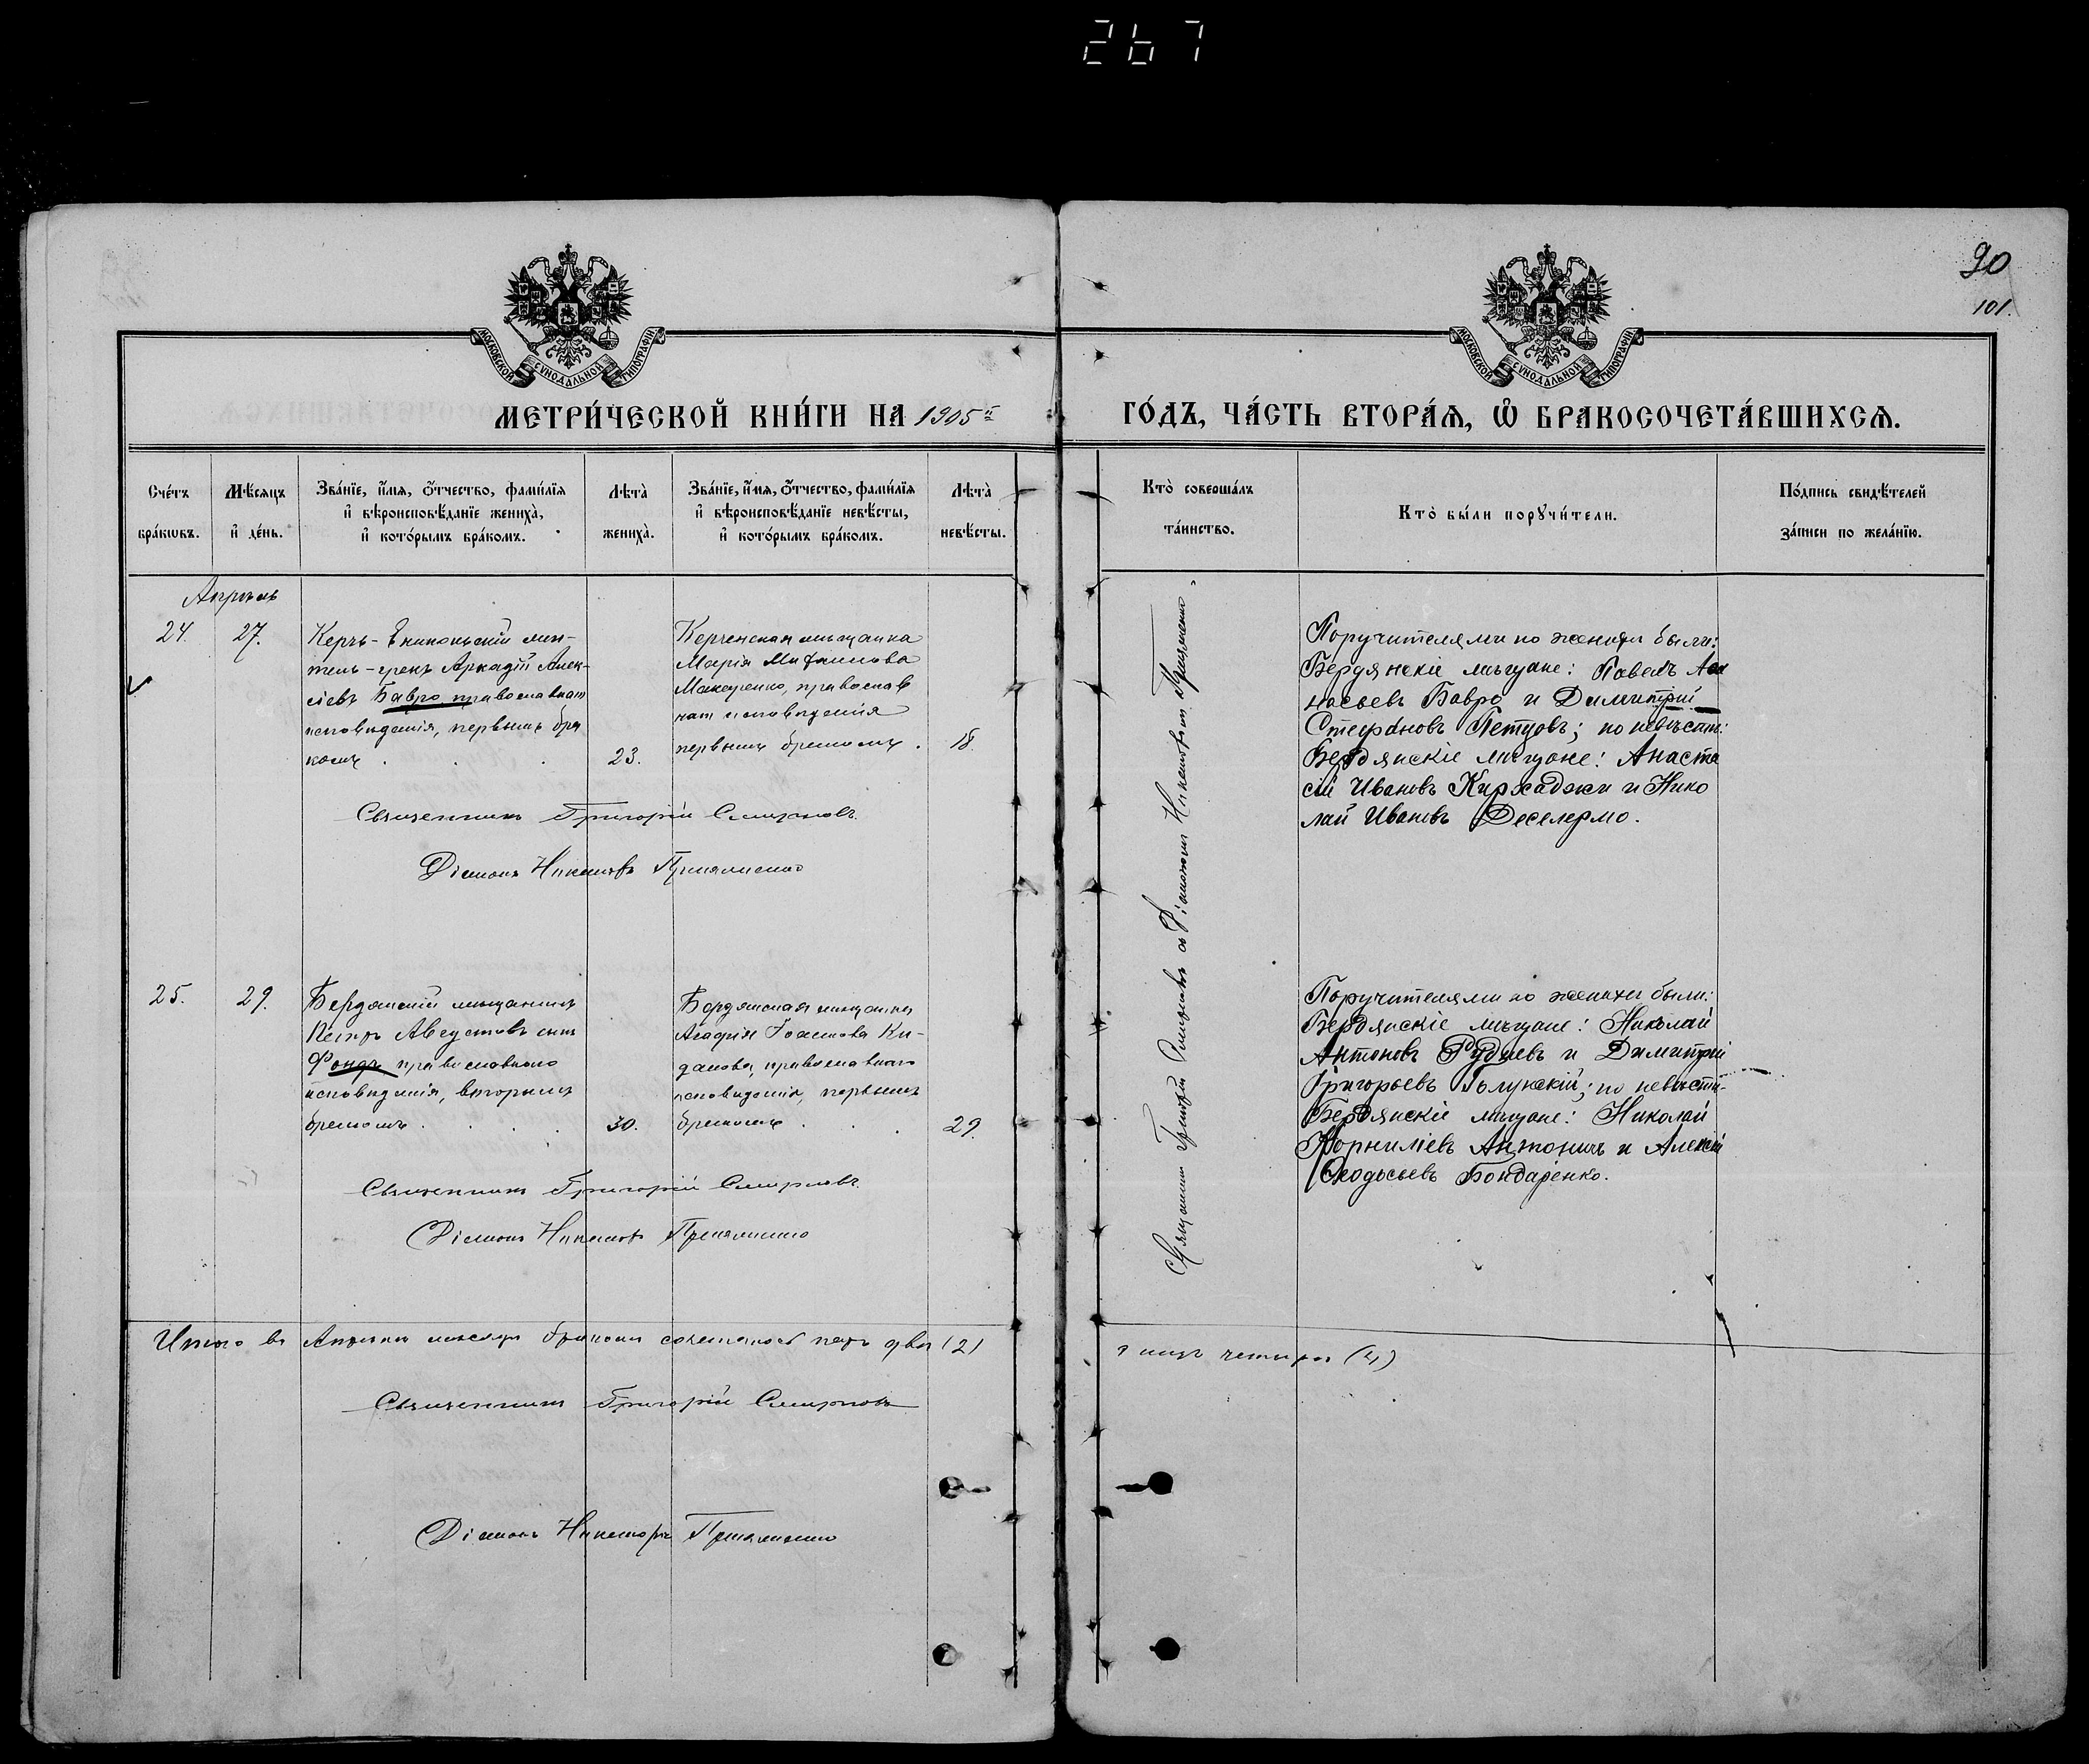 267
90
101.
МОСКОВСКОЙ СУНОДАЛЬНОЙ ТИПОГРАФІИ
МОСКОВСКОЙ СУНОДАЛЬНОЙ ТИПОГРАФІИ
МЕТРИ́ЧЕСКОЙ КНИ́ГИ НА 1905й ГО́ДЪ, ЧА́СТЬ ВТОРА́Ѧ, Ѽ БРАКОСОЧЕТА́ВШИХСѦ.
Сче́тъ
бра́кѡвъ.
Мѣ́сѧцъ
и҆ де́нь.
Зва́нїе, и҆́мѧ, ѻ҆́тчество, фами́лїѧ
и҆ вѣроисповѣ́данїе жениха̀,
и҆ кото́рымъ бра́комъ.
Лѣта̀
жениха̀.
Зва́нїе, и҆́мѧ, ѻ҆́тчество, фами́лїѧ
и҆ вѣроисповѣ́данїе невѣ́сты,
и҆ кото́рымъ бра́комъ.
Лѣта̀
невѣ́сты.
Кто̀ соверша́лъ
та́инство.
Кто̀ бы́ли порꙋчи́тели.
По́дпись свидѣ́телей
за́писи по жела́нїю.
Апрѣль
24.
27.
Керчь-Еникольскій жи-
тель-грекъ Аркадій Алек-
сіевъ Бавро православнаго
исповѣданія, первымъ бра
комъ
23.
Керченская мѣщанка
Марія
Макаренко, православ
наго исповѣданія
первымъ бракомъ.
18.
Поручителями по женихѣ были:
Бердянскіе мѣщане: Павелъ Афа
насьевъ Бавро и Димитрій
Стефановъ Петровъ; по невѣстѣ:
Бердянскіе мѣщане: Анаста
сій Ивановъ Кирхаджи и Нико
лай Ивановъ Деселермо.
Священникъ Григорій Смирновъ.
Діаконъ
25.
29.
Бердянскій мѣщанинъ
Петръ Августовъ сынъ
Фондъ православнаго
исповѣданія, вторымъ
бракомъ
30.
Бердянская мѣщанка
Агафія Іоакимова Ки-
данова, православнаго
исповѣданія, первымъ
бракомъ
29.
Поручителями по женихѣ были:
Бердянскіе мѣщане: Николай
Антоновъ Рудневъ и Димитрій
Григорьевъ Голунскій; по невѣстѣ-
Бердянскіе мѣщане: Николай
Корниліевъ Антоничъ и Алексій
Ѳеодосьевъ Бондаренко.
Священникъ Григорій Смирновъ.
Діаконъ
Священникъ Григорій Смирновъ съ Діакономъ
Итого въ Апрѣлѣ мѣсяцѣ бракомъ сочеталось паръ два (2)
а лицъ четыре (4)
Священникъ Григорій Смирновъ
Діаконъ